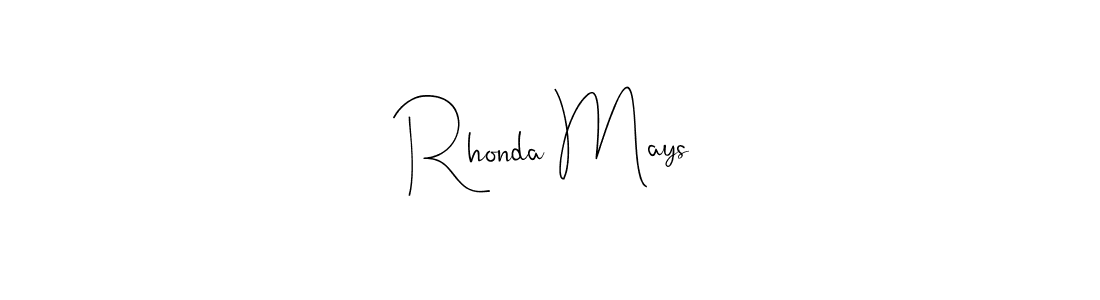 Rhonda Mays